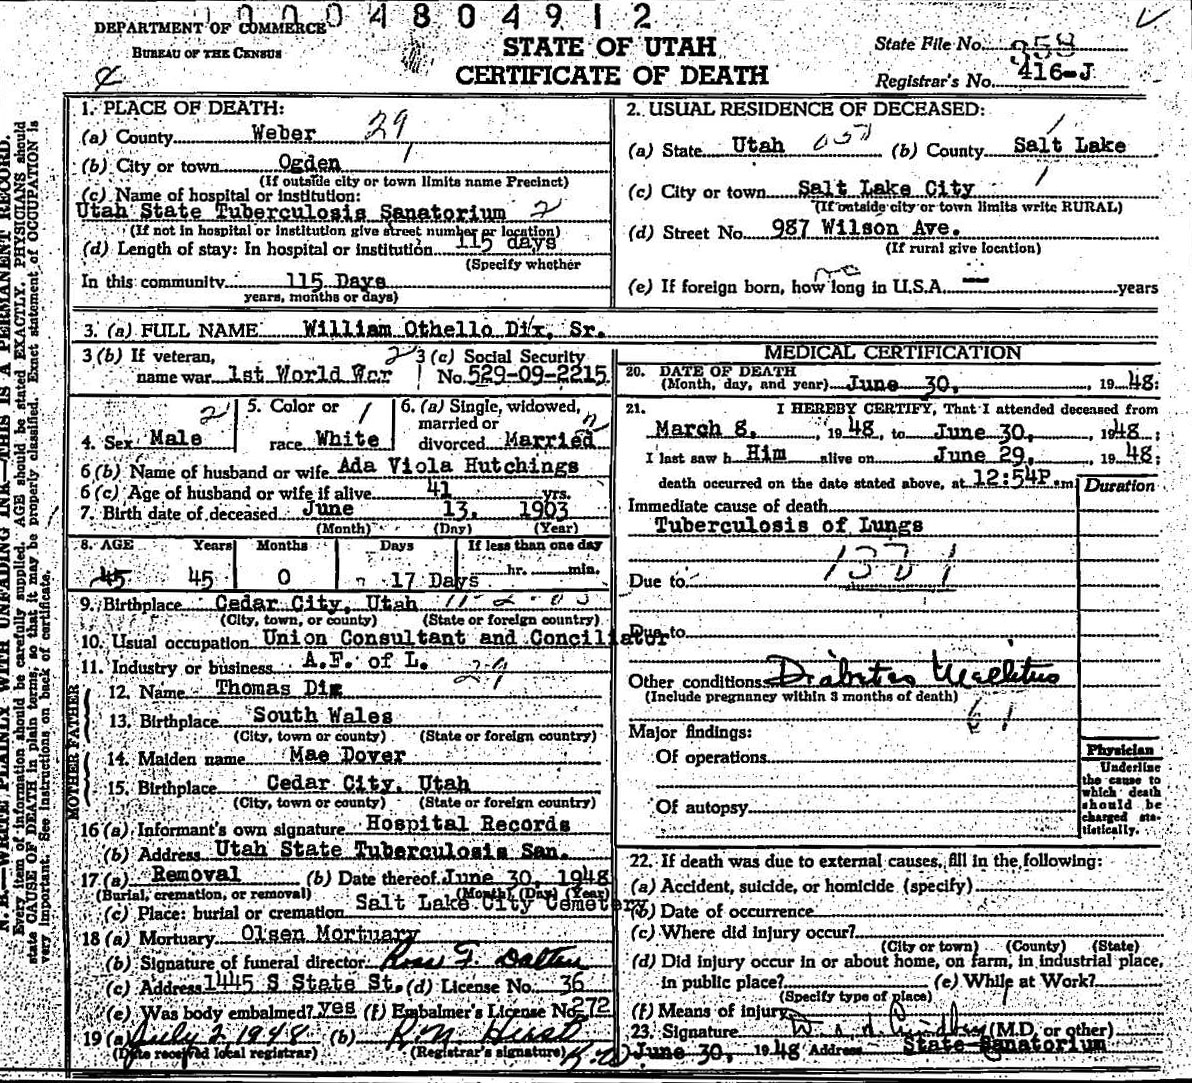 10004804912
DEPARTMENT OF COMMERCE
BUREAU OF THE CENSUS
STATE OF UTAH
CERTIFICATE OF DEATH
State File No. 958
Registrar's No. 416-J
N. B.—WRITE PLAINLY WITH UNFADING INK—THIS IS A PERMANENT RECORD.
Every item of information should be carefully supplied. AGE should be stated EXACTLY. PHYSICIANS should
state CAUSE OF DEATH in plain terms, so that it may be properly classified. Exact statement of OCCUPATION is
very important. See instructions on back of certificate.
1. PLACE OF DEATH:
(a) County Weber 29
(b) City or town Ogden 1
(If outside city or town limits name Precinct)
(c) Name of hospital or institution:
Utah State Tuberculosis Sanatorium 2
(If not in hospital or institution give street number or location)
(d) Length of stay: In hospital or institution 115 days
(Specify whether
In this community 115 Days
years, months or days)
2. USUAL RESIDENCE OF DECEASED:
(a) State Utah (b) County Salt Lake
(c) City or town Salt Lake City 1
(If outside city or town limits write RURAL)
(d) Street No. 987 Wilson Ave.
(If rural give location)
no
(e) If foreign born, how long in U.S.A. — years
3. (a) FULL NAME William Othello Dix, Sr.
3 (b) If veteran, 2 3 (c) Social Security
name war 1st World War No. 529-09-2215
4. Sex Male 2
5. Color or race White 1
6. (a) Single, widowed, married or divorced Married
6 (b) Name of husband or wife Ada Viola Hutchings
6 (c) Age of husband or wife if alive 41 yrs.
7. Birth date of deceased June 13, 1903
(Month) (Day) (Year)
8. AGE Years Months Days If less than one day
45 45 0 17 Days hr. min.
9. Birthplace Cedar City, Utah
(City, town, or county) (State or foreign country)
10. Usual occupation Union Consultant and Conciliator
11. Industry or business A.F. of L.
FATHER
12. Name Thomas Dix
13. Birthplace South Wales
(City, town or county) (State or foreign country)
MOTHER
14. Maiden name Mae Dover
15. Birthplace Cedar City, Utah
(City, town or county) (State or foreign country)
16 (a) Informant's own signature Hospital Records
(b) Address Utah State Tuberculosis San.
17 (a) Removal (b) Date thereof June 30, 1948
(Burial, cremation, or removal) (Month) (Day) (Year)
(c) Place: burial or cremation Salt Lake City Cemetery
18 (a) Mortuary Olsen Mortuary
(b) Signature of funeral director Ross F. Dalton
(c) Address 1445 S State St. (d) License No. 36
(e) Was body embalmed? yes (f) Embalmer's License No. 272
19 (a) July 2, 1948 (b) R.N. Hirst
(Date received local registrar) (Registrar's signature)
MEDICAL CERTIFICATION
20. DATE OF DEATH
(Month, day, and year) June 30, , 19 48:
21. I HEREBY CERTIFY, That I attended deceased from
March 8, , 19 48, to June 30, , 19 48;
I last saw h Him alive on June 29, , 19 48;
death occurred on the date stated above, at 12:54P.m
Duration
Immediate cause of death
Tuberculosis of Lungs
Due to
Due to
Other conditions Diabetes Mellitus
(Include pregnancy within 3 months of death)
61
Major findings:
Of operations
Of autopsy
Physician
Underline
the cause to
which death
should be
charged sta-
tistically.
22. If death was due to external causes, fill in the following:
(a) Accident, suicide, or homicide (specify)
(b) Date of occurrence
(c) Where did injury occur?
(City or town) (County) (State)
(d) Did injury occur in or about home, on farm, in industrial place,
in public place? (e) While at Work?
(Specify type of place)
(f) Means of injury
23. Signature (M.D. or other)
June 30, 19 48 Address State Sanatorium